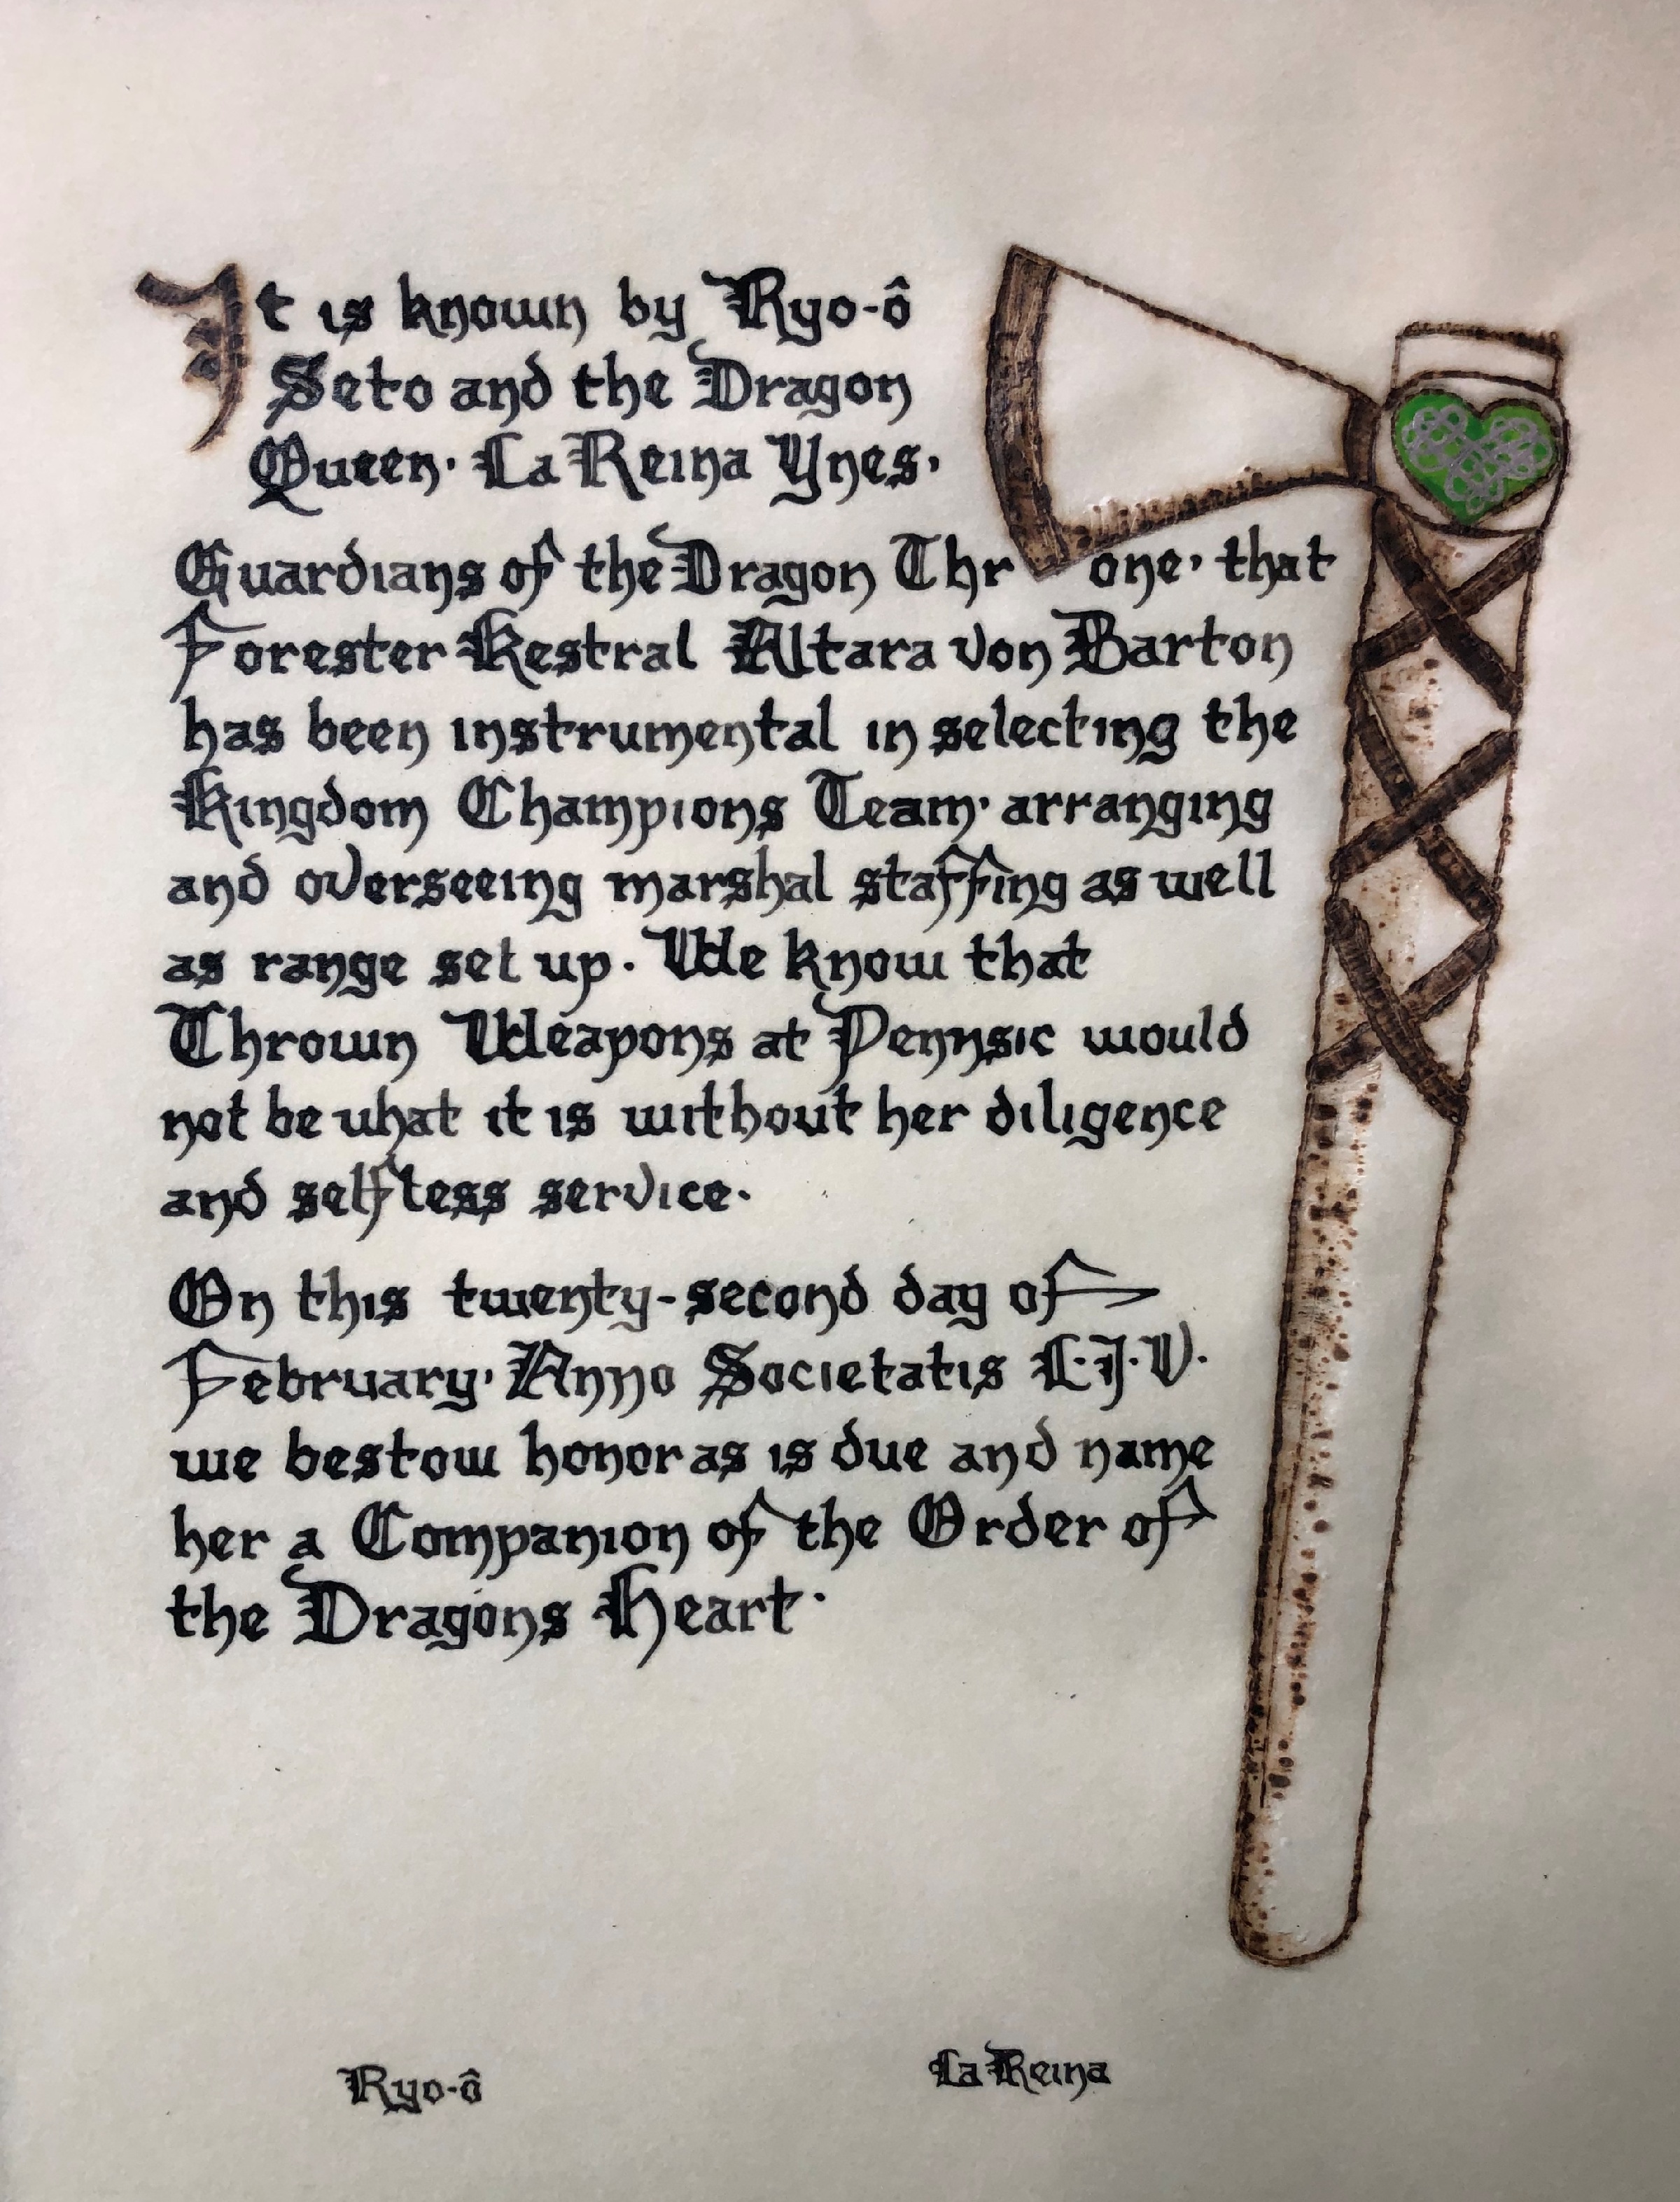 It is known by Ryo-ô
Seto and the Dragon
Queen· La Reina Ynes,
Guardians of the Dragon Throne, that
Forester Kestral Altara von Barton
has been instrumental in selecting the
Kingdom Champions Team· arranging
and overseeing marshal staffing as well
as range set up. We know that
Thrown Weapons at Pennsic would
not be what it is without her diligence
and selfless service.
On this twenty-second day of
February, Anno Societatis L·I·V·
we bestow honor as is due and name
her a Companion of the Order of
the Dragons Heart·
Ryo-ô
La Reina